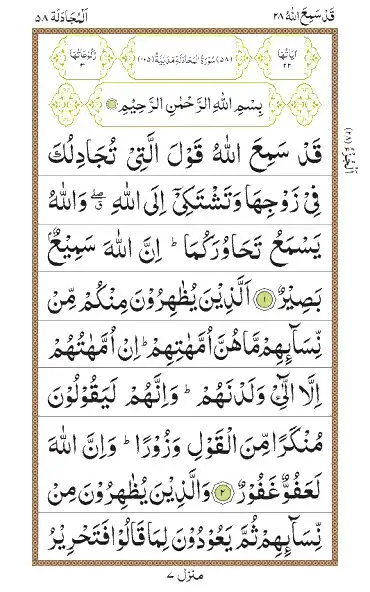 قَدۡ سَمِعَ اللّٰهُ ٢٨
اَلۡمُجَادَلَة ٥٨
اٰیَاتُهَا ٢٢
(٥٨) سُوۡرَةُ الۡمُجَادَلَةِ مَدَنِیَّةٌ (١٠٥)
رُكُوۡعَاتُهَا ٣
بِسۡمِ اللّٰهِ الرَّحۡمٰنِ الرَّحِیۡمِ
قَدۡ سَمِعَ اللّٰهُ قَوۡلَ الَّتِیۡ تُجَادِلُكَ
فِیۡ زَوۡجِهَا وَتَشۡتَكِیۡۤ اِلَی اللّٰهِ ۖ وَاللّٰهُ
یَسۡمَعُ تَحَاوُرَكُمَا ؕ اِنَّ اللّٰهَ سَمِیۡعٌۢ
بَصِیۡرٌ ﴿١﴾ اَلَّذِیۡنَ یُظٰهِرُوۡنَ مِنۡكُمۡ مِّنۡ
نِّسَآىِٕهِمۡ مَّا هُنَّ اُمَّهٰتِهِمۡ ؕ اِنۡ اُمَّهٰتُهُمۡ
اِلَّا الّٰٓـِٔیۡ وَلَدۡنَهُمۡ ؕ وَاِنَّهُمۡ لَیَقُوۡلُوۡنَ
مُنۡكَرًا مِّنَ الۡقَوۡلِ وَزُوۡرًا ؕ وَاِنَّ اللّٰهَ
لَعَفُوٌّ غَفُوۡرٌ ﴿٢﴾ وَالَّذِیۡنَ یُظٰهِرُوۡنَ مِنۡ
نِّسَآىِٕهِمۡ ثُمَّ یَعُوۡدُوۡنَ لِمَا قَالُوۡا فَتَحۡرِیۡرُ
اَلۡجُزۡءُ (٢٨)
منزل ٧